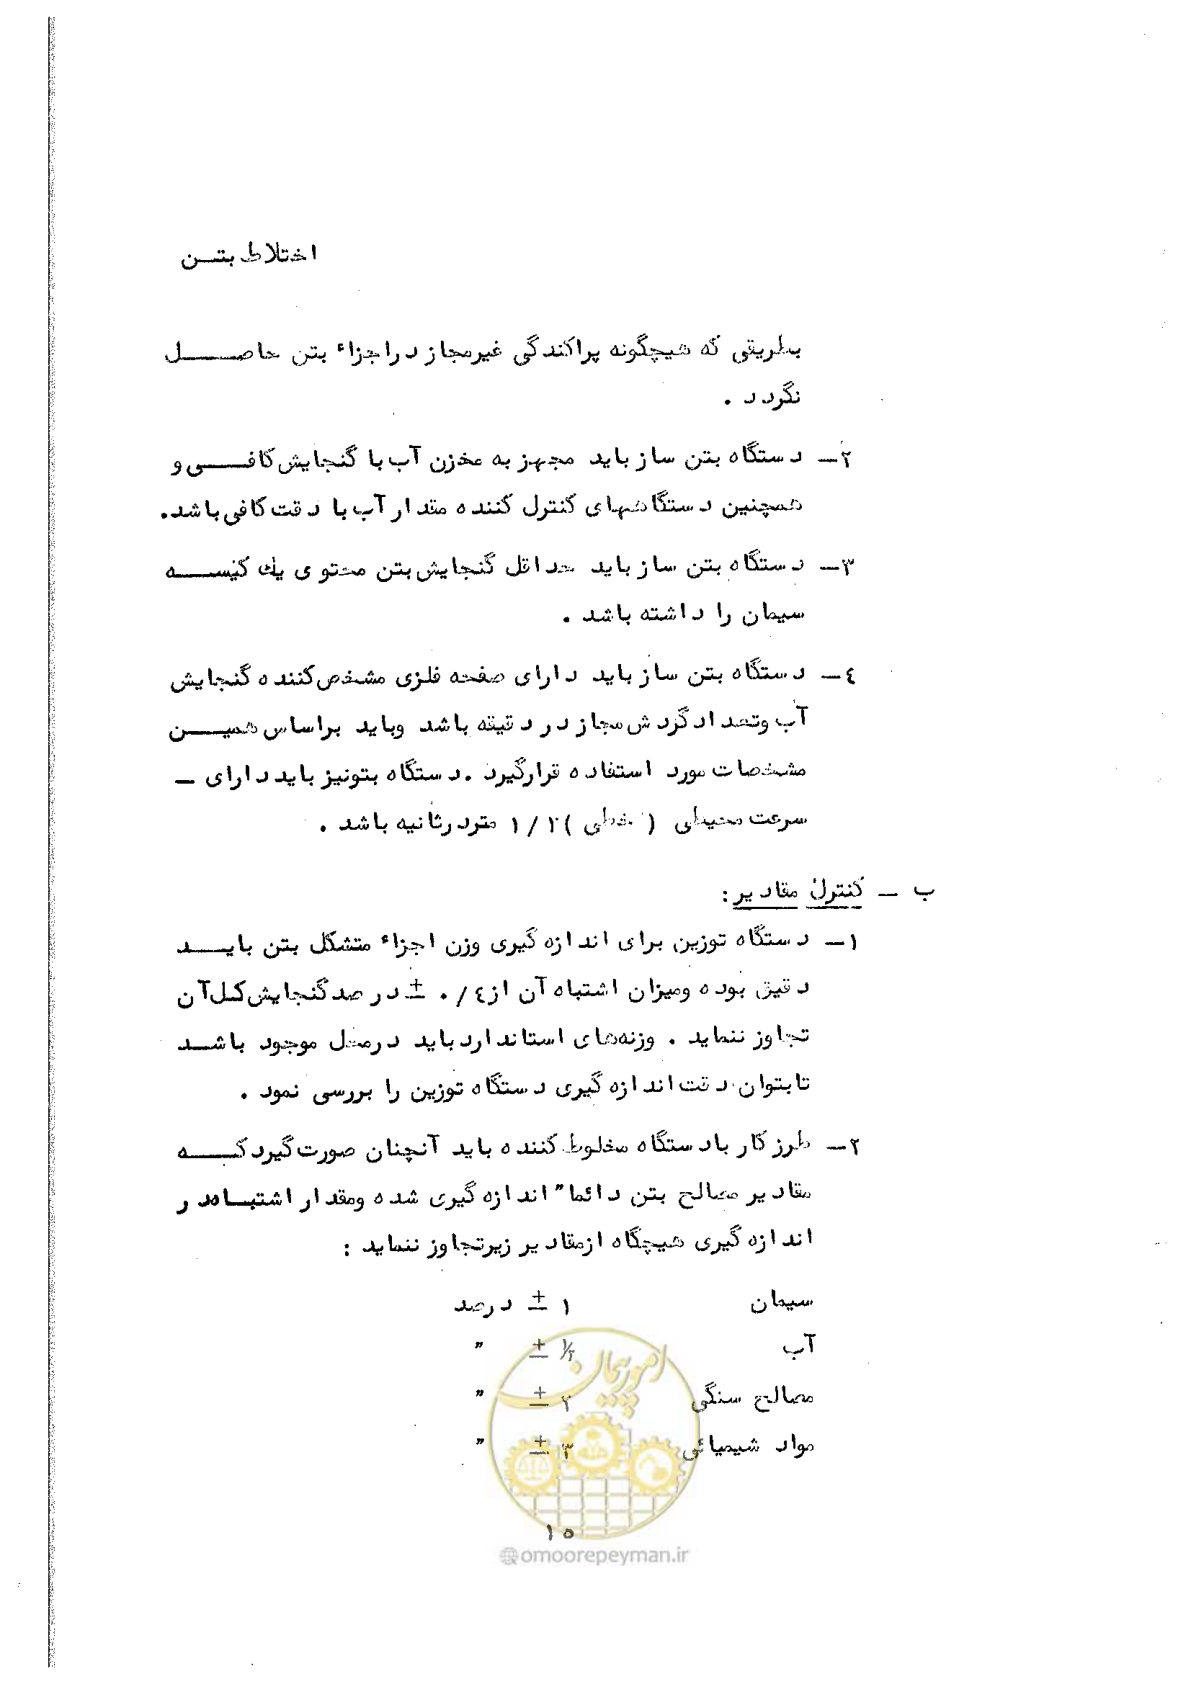 اختلاط بتن
بطریقی که هیچگونه پراکندگی غیرمجاز دراجزاء بتن حاصل
نگردد .
۲- دستگاه بتن ساز باید مجهز به مخزن آب با گنجایش کافی و
همچنین دستگاههای کنترل کننده مقدار آب با دقت کافی باشد.
۳- دستگاه بتن ساز باید حداقل گنجایش بتن محتوی یک کیسه
سیمان را داشته باشد .
٤- دستگاه بتن ساز باید دارای صفحه فلزی مشخص کننده گنجایش
آب وتعداد گردش مجاز در دقیقه باشد وباید براساس همین
مشخصات مورد استفاده قرارگیرد .دستگاه بتونیز باید دارای -
سرعت محیطی ( خطی ) ۱/۲ متردرثانیه باشد .
ب - کنترل مقادیر :
۱- دستگاه توزین برای اندازه گیری وزن اجزاء متشکل بتن باید
دقیق بوده ومیزان اشتباه آن از ۰/٤ ± درصد گنجایش کل آن
تجاوز ننماید . وزنه‌های استاندارد باید درمحل موجود باشد
تابتوان دقت اندازه گیری دستگاه توزین را بررسی نمود .
۲- طرز کار با دستگاه مخلوط کننده باید آنچنان صورت گیرد که
مقادیر مصالح بتن دائما" اندازه گیری شده ومقدار اشتباه در
اندازه گیری هیچگاه ازمقادیر زیرتجاوز ننماید :
سیمان ۱ ± درصد
آب ۱/۲ ± "
مصالح سنگی ۲ ± "
مواد شیمیائی ۳ ± "
امور پیمان
۱۵
@omoorepeyman.ir